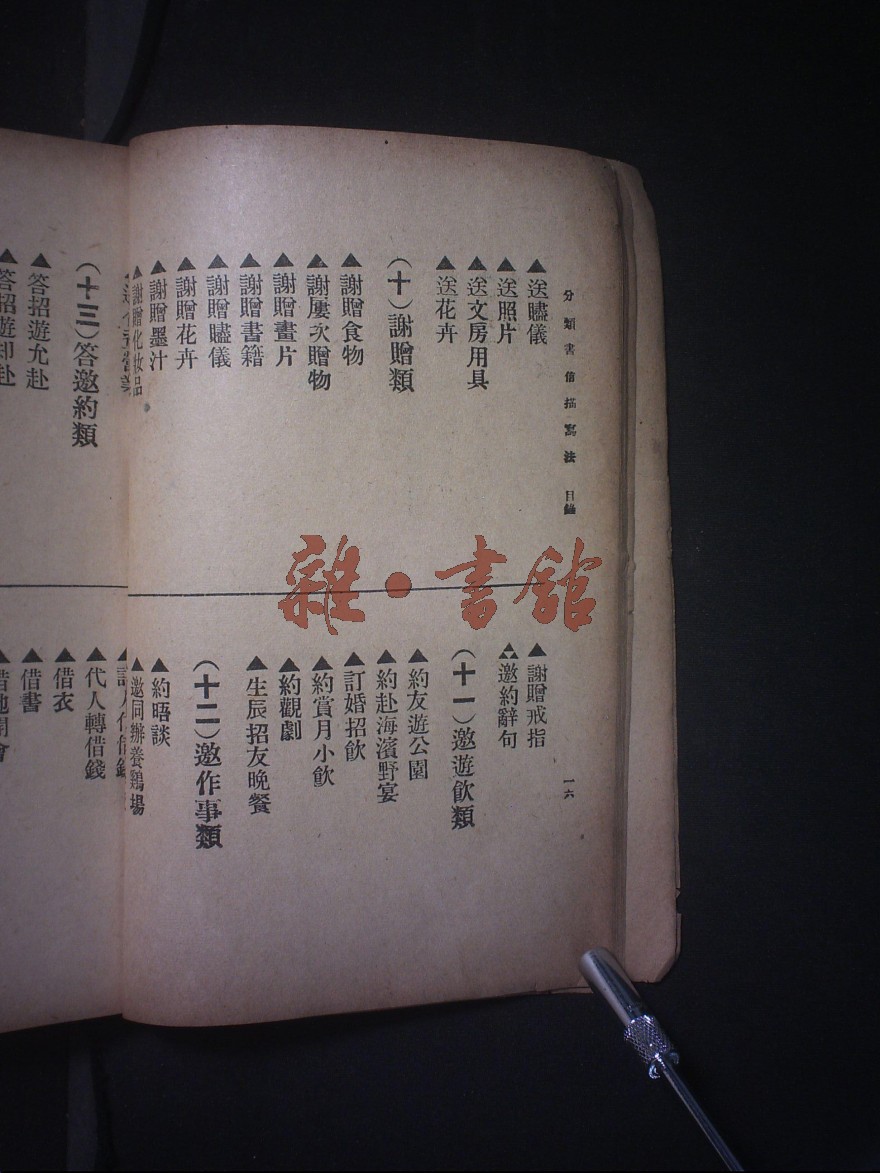 分類書信描寫法 目錄
一六
▲送贐儀
▲送照片
▲送文房用具
▲送花卉
(十)謝贈類
▲謝贈食物
▲謝屢次贈物
▲謝贈畫片
▲謝贈書籍
▲謝贈贐儀
▲謝贈花卉
▲謝贈墨汁
▲謝贈化妝品
▲謝贈戒指
▲邀約辭句
(十一)邀遊飲類
▲約友遊公園
▲約赴海濱野宴
▲訂婚招飲
▲約賞月小飲
▲約觀劇
▲生辰招友晚餐
(十二)邀作事類
▲約晤談
▲邀同辦養鷄場
(十三)答邀約類
▲答招遊允赴
▲答招遊却赴
▲代人轉借錢
▲借衣
▲借書
雜·書館